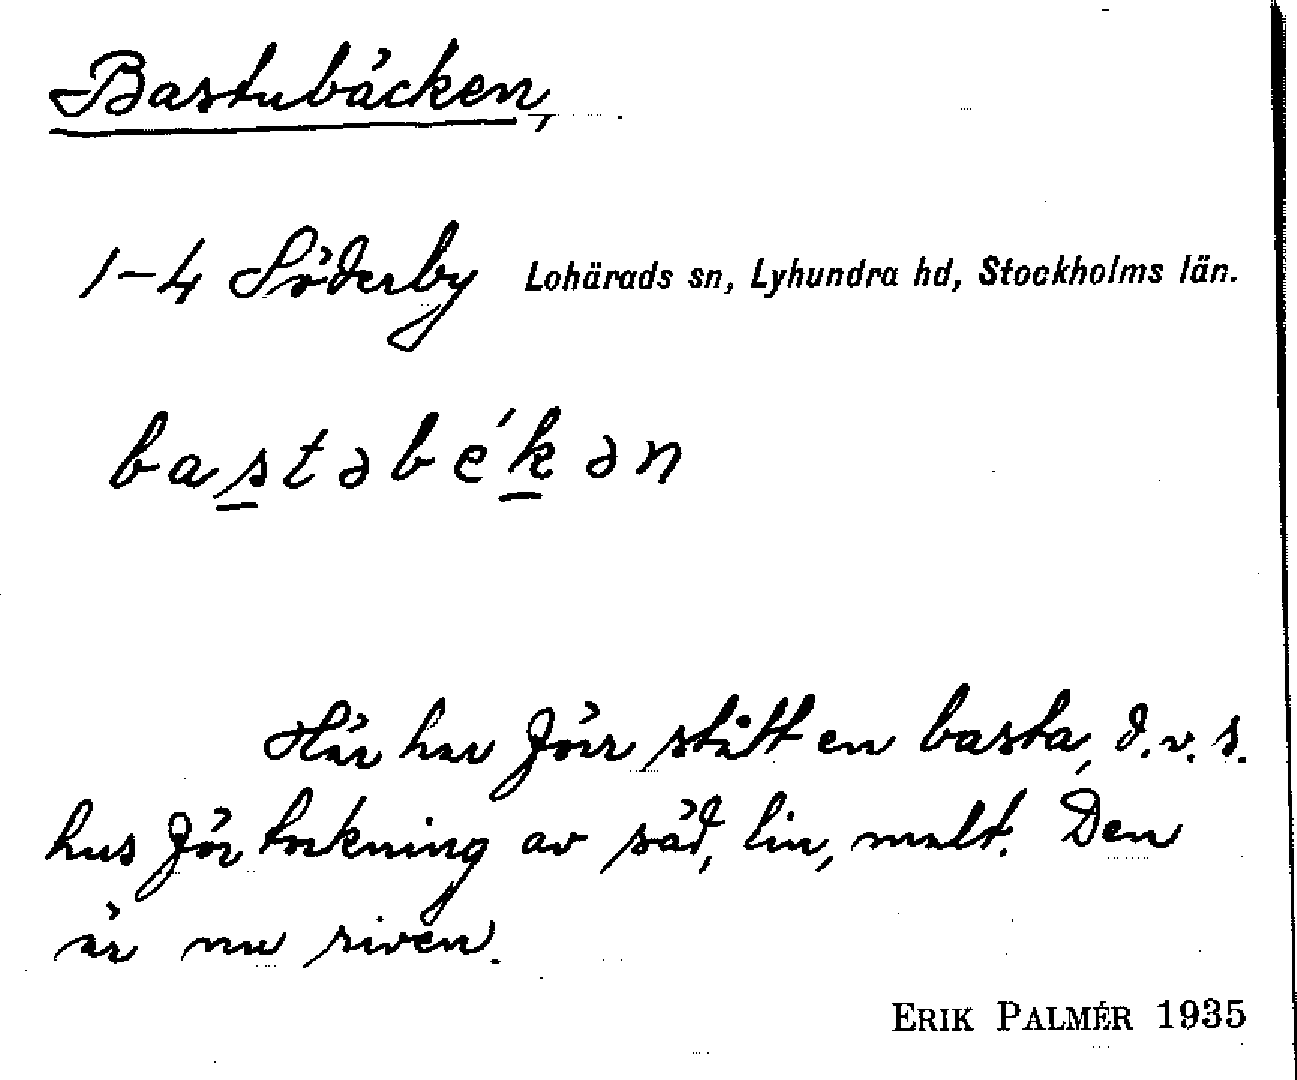 Bastubäcken,
1-4 Söderby Lohärads sn, Lyhundra hd, Stockholms län.
bastəbékən
Här har förr stått en basta, d.v.s.
hus för torkning av säd, lin, malt. Den
är nu riven.
ERIK PALMÉR 1935